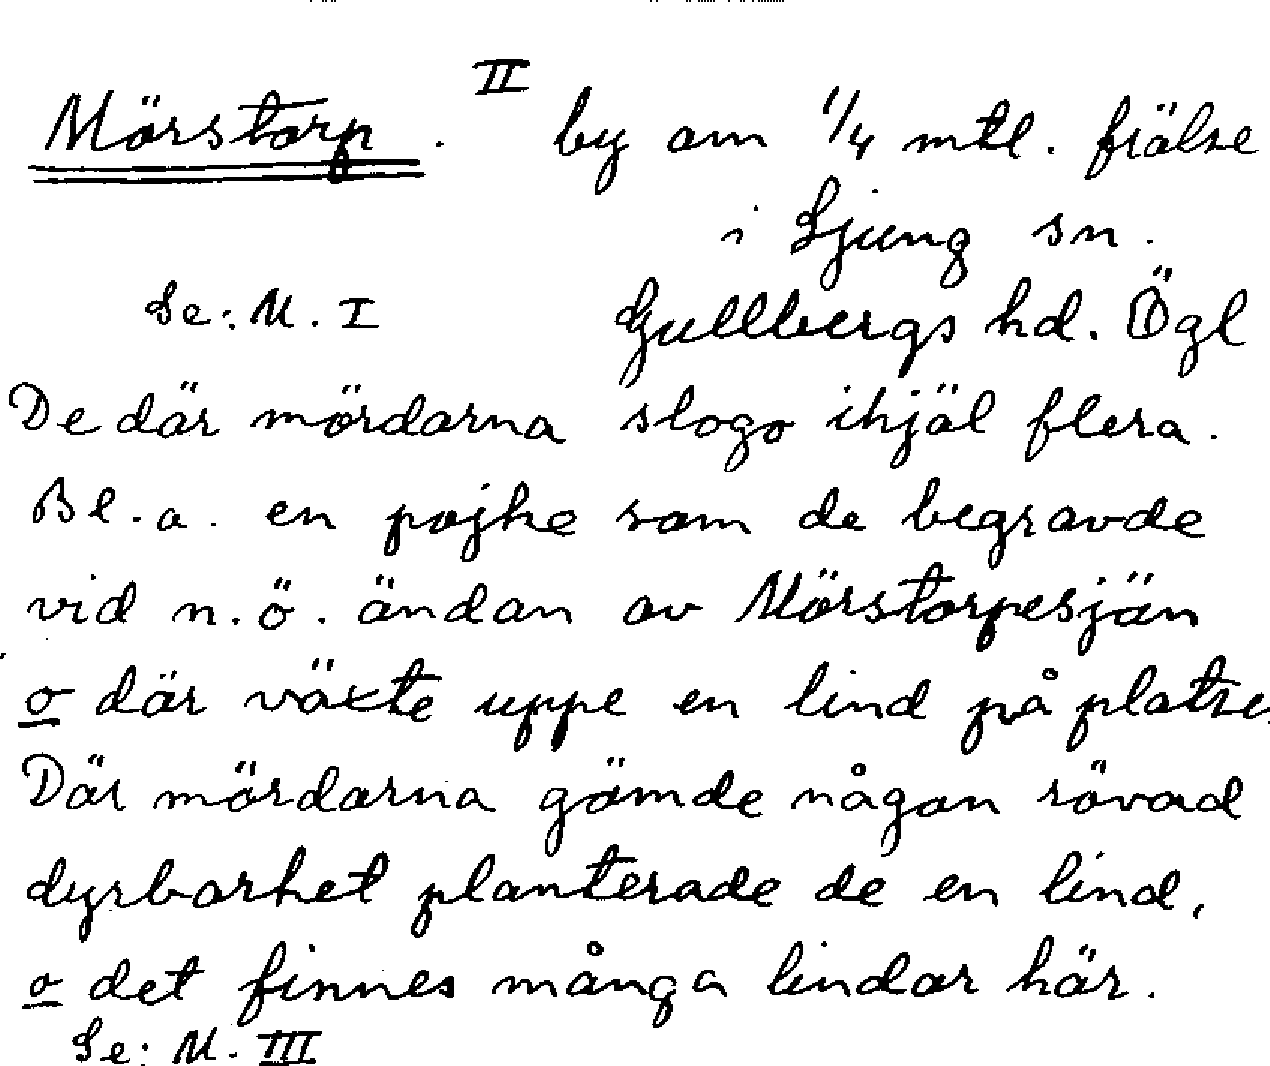 Mörstorp. II by om 1/4 mtl. frälse
i Ljung sn.
Se: M. I Gullbergs hd. Ögl
De där mördarna slogo ihjäl flera.
Bl.a. en pojke som de begravde
vid n.ö. ändan av Mörstorpesjön
o där växte uppe en lind på platse
Där mördarna gömde någon rövad
dyrbarhet planterade de en lind,
o det finnes många lindar här.
Se: M. III